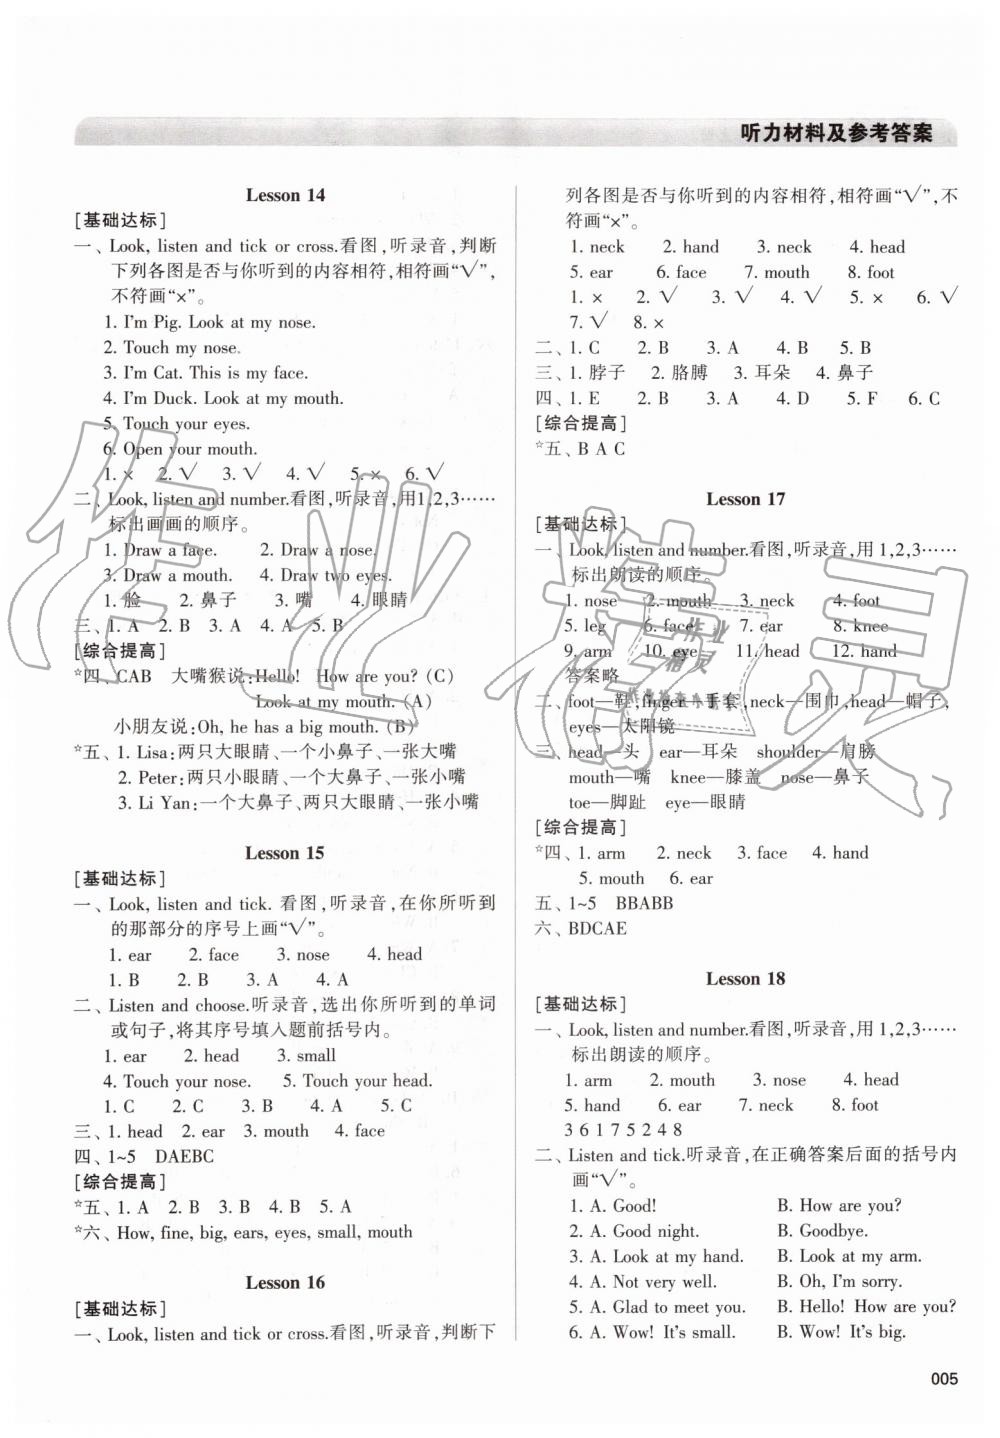 听力材料及参考答案
Lesson 14
[基础达标]
一、Look, listen and tick or cross.看图,听录音,判断
下列各图是否与你听到的内容相符,相符画“√”,
不符画“×”。
1. I'm Pig. Look at my nose.
2. Touch my nose.
3. I'm Cat. This is my face.
4. I'm Duck. Look at my mouth.
5. Touch your eyes.
6. Open your mouth.
1. × 2. √ 3. √ 4. √ 5. × 6. √
二、Look, listen and number.看图,听录音,用1,2,3……
标出画画的顺序。
1. Draw a face. 2. Draw a nose.
3. Draw a mouth. 4. Draw two eyes.
1. 脸 2. 鼻子 3. 嘴 4. 眼睛
三、1. A 2. B 3. A 4. A 5. B
[综合提高]
☆四、CAB 大嘴猴说:Hello! How are you? (C)
Look at my mouth. (A)
小朋友说:Oh, he has a big mouth. (B)
☆五、1. Lisa:两只大眼睛、一个小鼻子、一张大嘴
2. Peter:两只小眼睛、一个大鼻子、一张小嘴
3. Li Yan:一个大鼻子、两只大眼睛、一张小嘴
Lesson 15
[基础达标]
一、Look, listen and tick. 看图,听录音,在你所听到
的那部分的序号上画“√”。
1. ear 2. face 3. nose 4. head
1. B 2. B 3. A 4. A
二、Listen and choose.听录音,选出你所听到的单词
或句子,将其序号填入题前括号内。
1. ear 2. head 3. small
4. Touch your nose. 5. Touch your head.
1. C 2. C 3. B 4. A 5. C
三、1. head 2. ear 3. mouth 4. face
四、1~5 DAEBC
[综合提高]
☆五、1. A 2. B 3. B 4. B 5. A
☆六、How, fine, big, ears, eyes, small, mouth
Lesson 16
[基础达标]
一、Look, listen and tick or cross.看图,听录音,判断下
列各图是否与你听到的内容相符,相符画“√”,不
符画“×”。
1. neck 2. hand 3. neck 4. head
5. ear 6. face 7. mouth 8. foot
1. × 2. √ 3. √ 4. √ 5. × 6. √
7. √ 8. ×
二、1. C 2. B 3. A 4. B 5. B
三、1. 脖子 2. 胳膊 3. 耳朵 4. 鼻子
四、1. E 2. B 3. A 4. D 5. F 6. C
[综合提高]
☆五、B A C
Lesson 17
[基础达标]
一、Look, listen and number.看图,听录音,用 1,2,3……
标出朗读的顺序。
1. nose 2. mouth 3. neck 4. foot
5. leg 6. face 7. ear 8. knee
9. arm 10. eye 11. head 12. shoulder
答案略
二、foot—鞋,finger—手套,neck—围巾,head—帽子,
eyes—太阳镜
三、head—头 ear—耳朵 shoulder—肩膀
mouth—嘴 knee—膝盖 nose—鼻子
toe—脚趾 eye—眼睛
[综合提高]
☆四、1. arm 2. neck 3. face 4. hand
5. mouth 6. ear
五、1~5 BBABB
六、BDCAE
Lesson 18
[基础达标]
一、Look, listen and number.看图,听录音,用 1,2,3……
标出朗读的顺序。
1. arm 2. mouth 3. nose 4. head
5. hand 6. ear 7. neck 8. foot
3 6 1 7 5 2 4 8
二、Listen and tick.听录音,在正确答案后面的括号内
画“√”。
1. A. Good! B. How are you?
2. A. Good night. B. Goodbye.
3. A. Look at my hand. B. Look at my arm.
4. A. Not very well. B. Oh, I'm sorry.
5. A. Glad to meet you. B. Hello! How are you?
6. A. Wow! It's small. B. Wow! It's big.
005
作业精灵
作业
精灵